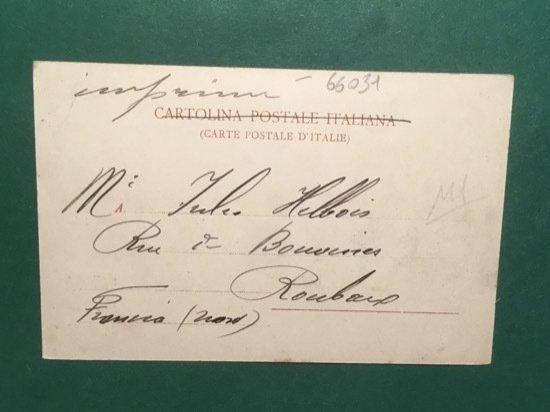 imprimé 66031
CARTOLINA POSTALE ITALIANA
(CARTE POSTALE D'ITALIE)
A Mr Jules Helbois
Rue de Bouvines
Roubaix
Francia (Nord)